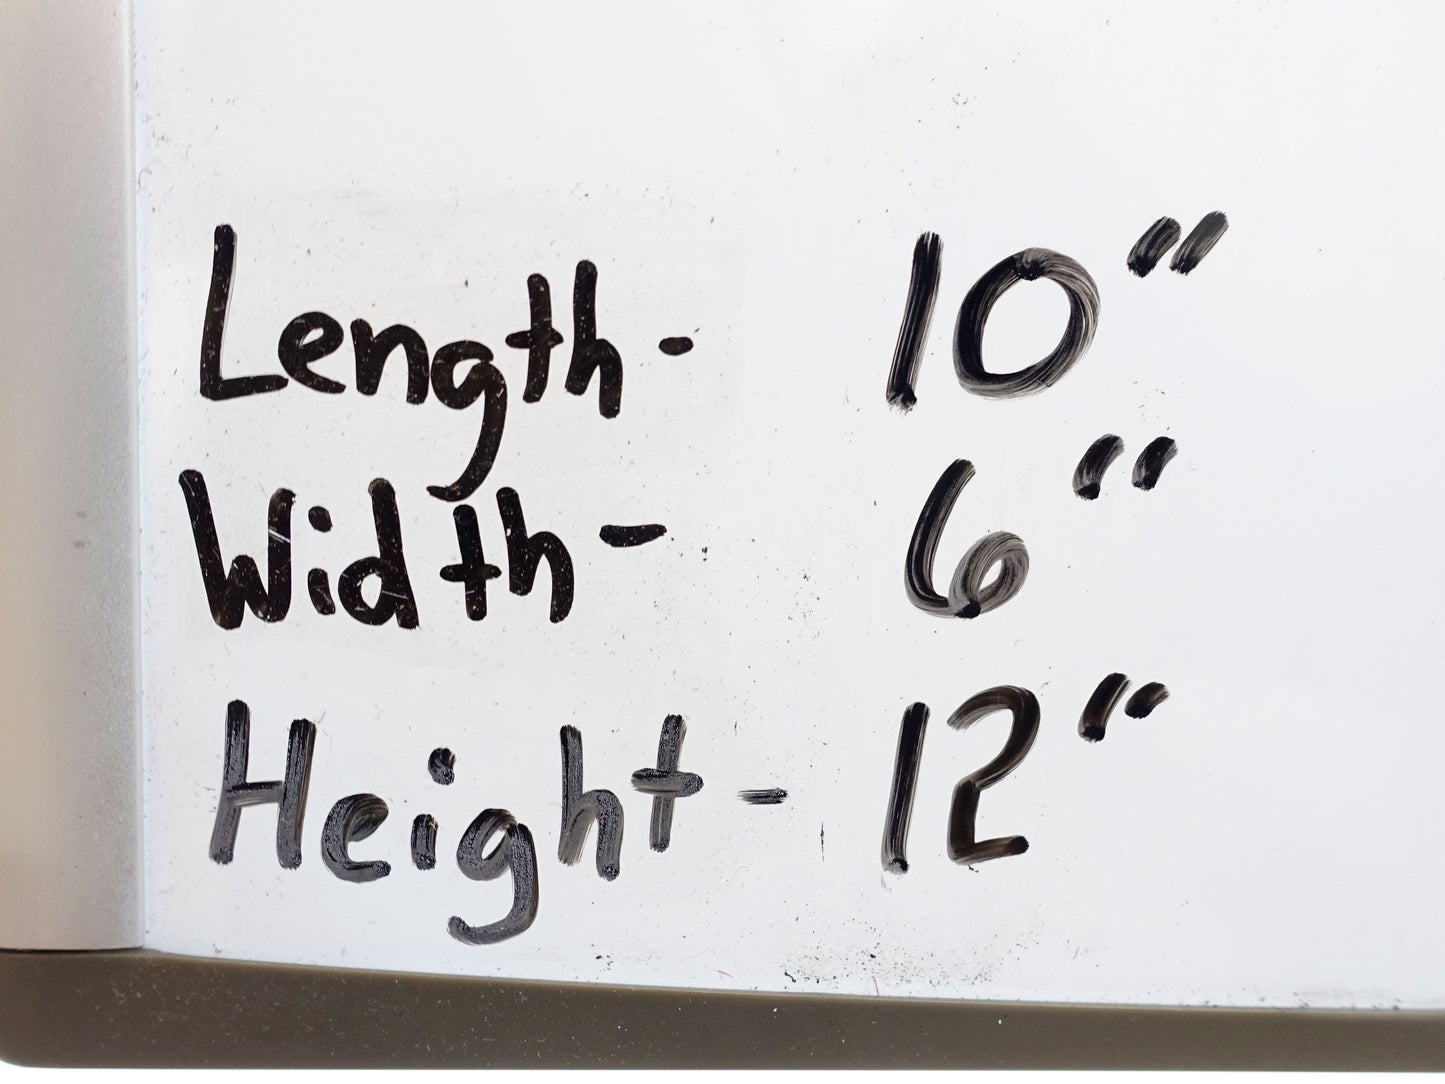 Length- 10"
Width- 6"
Height- 12"